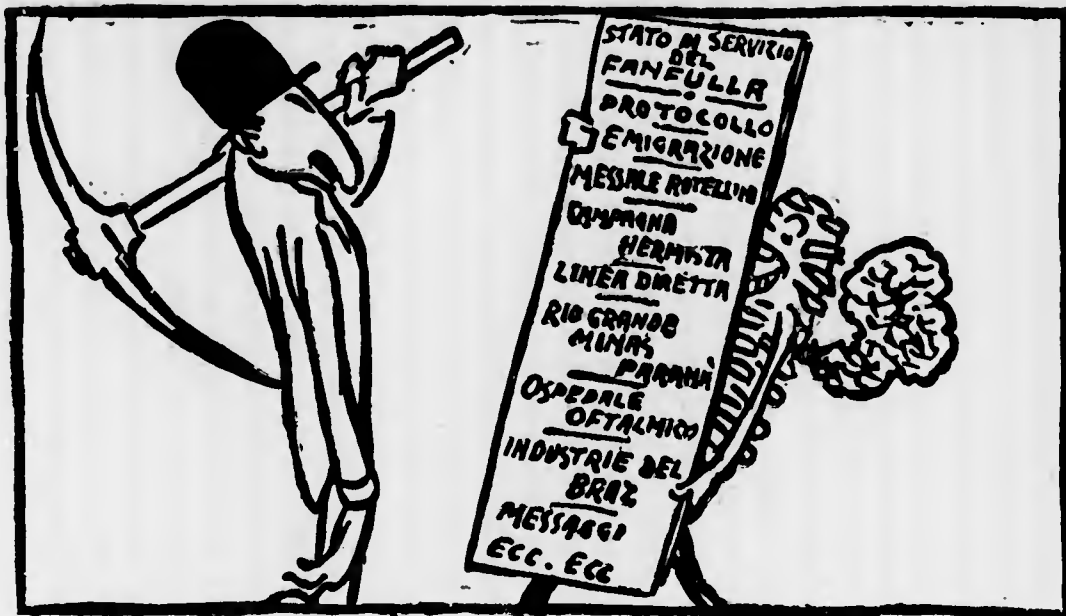 STATO DI SERVIZIO
DEL
FANFULLA
PROTOCOLLO
EMIGRAZIONE
MESSALE ROTELLINI
CAMPAGNA
HERMISTA
LINEA DIRETTA
RIO GRANDE
MINAS
PARANÀ
OSPEDALE
OFTALMICO
INDUSTRIE DEL
BRAZ
MESSAGGI
ECC. ECC